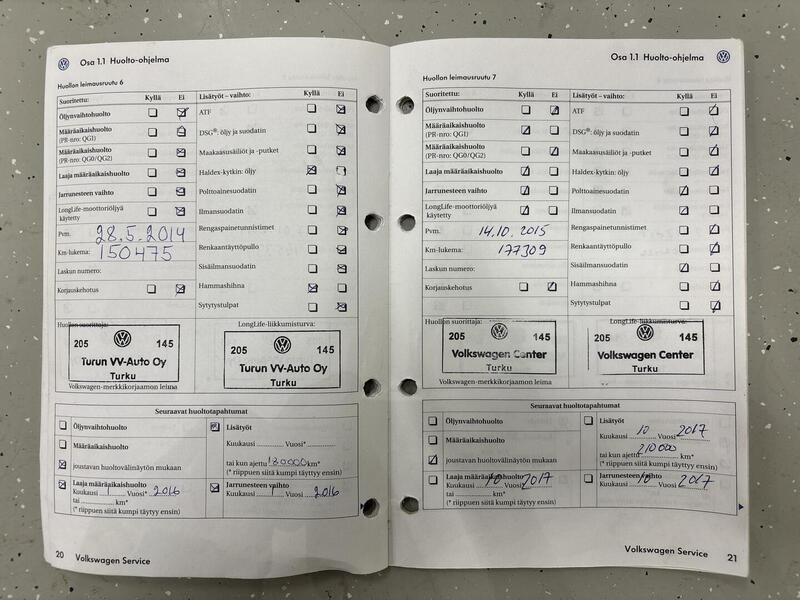 Osa 1.1 Huolto-ohjelma
Huollon leimausruutu 6
Suoritettu: Kyllä Ei
Öljynvaihtohuolto
Määräaikaishuolto
(PR-nro: QG1)
Määräaikaishuolto
(PR-nro: QG0/QG2)
Laaja määräaikaishuolto
Jarrunesteen vaihto
LongLife-moottoriöljyä
käytetty
Pvm. 28.5.2014
Km-lukema: 150475
Laskun numero:
Korjauskehotus
Lisätyöt – vaihto: Kyllä Ei
ATF
DSG®: öljy ja suodatin
Maakaasusäiliöt ja -putket
Haldex-kytkin: öljy
Polttoainesuodatin
Ilmansuodatin
Rengaspainetunnistimet
Renkaantäyttöpullo
Sisäilmansuodatin
Hammashihna
Sytytystulpat
Huollon suorittaja:
205 145
Turun VV-Auto Oy
Turku
Volkswagen-merkkikorjaamon leima
LongLife-liikkumisturva:
205 145
Turun VV-Auto Oy
Turku
Seuraavat huoltotapahtumat
Öljynvaihtohuolto
Määräaikaishuolto
joustavan huoltovälinäytön mukaan
Laaja määräaikaishuolto
Kuukausi 1 Vuosi* 2016
tai km*
(* riippuen siitä kumpi täytyy ensin)
Lisätyöt
Kuukausi Vuosi*
tai kun ajettu 180000 km*
(* riippuen siitä kumpi täytyy ensin)
Jarrunesteen vaihto
Kuukausi 1 Vuosi 2016
20 Volkswagen Service
Osa 1.1 Huolto-ohjelma
Huollon leimausruutu 7
Suoritettu: Kyllä Ei
Öljynvaihtohuolto
Määräaikaishuolto
(PR-nro: QG1)
Määräaikaishuolto
(PR-nro: QG0/QG2)
Laaja määräaikaishuolto
Jarrunesteen vaihto
LongLife-moottoriöljyä
käytetty
Pvm. 14.10.2015
Km-lukema: 177309
Laskun numero:
Korjauskehotus
Lisätyöt – vaihto: Kyllä Ei
ATF
DSG®: öljy ja suodatin
Maakaasusäiliöt ja -putket
Haldex-kytkin: öljy
Polttoainesuodatin
Ilmansuodatin
Rengaspainetunnistimet
Renkaantäyttöpullo
Sisäilmansuodatin
Hammashihna
Sytytystulpat
Huollon suorittaja:
205 145
Volkswagen Center
Turku
Volkswagen-merkkikorjaamon leima
LongLife-liikkumisturva:
205 145
Volkswagen Center
Turku
Seuraavat huoltotapahtumat
Öljynvaihtohuolto
Määräaikaishuolto
joustavan huoltovälinäytön mukaan
Laaja määräaikaishuolto
Kuukausi 10 Vuosi* 2017
tai km*
(* riippuen siitä kumpi täytyy ensin)
Lisätyöt
Kuukausi 10 Vuosi* 2017
tai kun ajettu 210000 km*
(* riippuen siitä kumpi täytyy ensin)
Jarrunesteen vaihto
Kuukausi 10 Vuosi 2017
Volkswagen Service 21